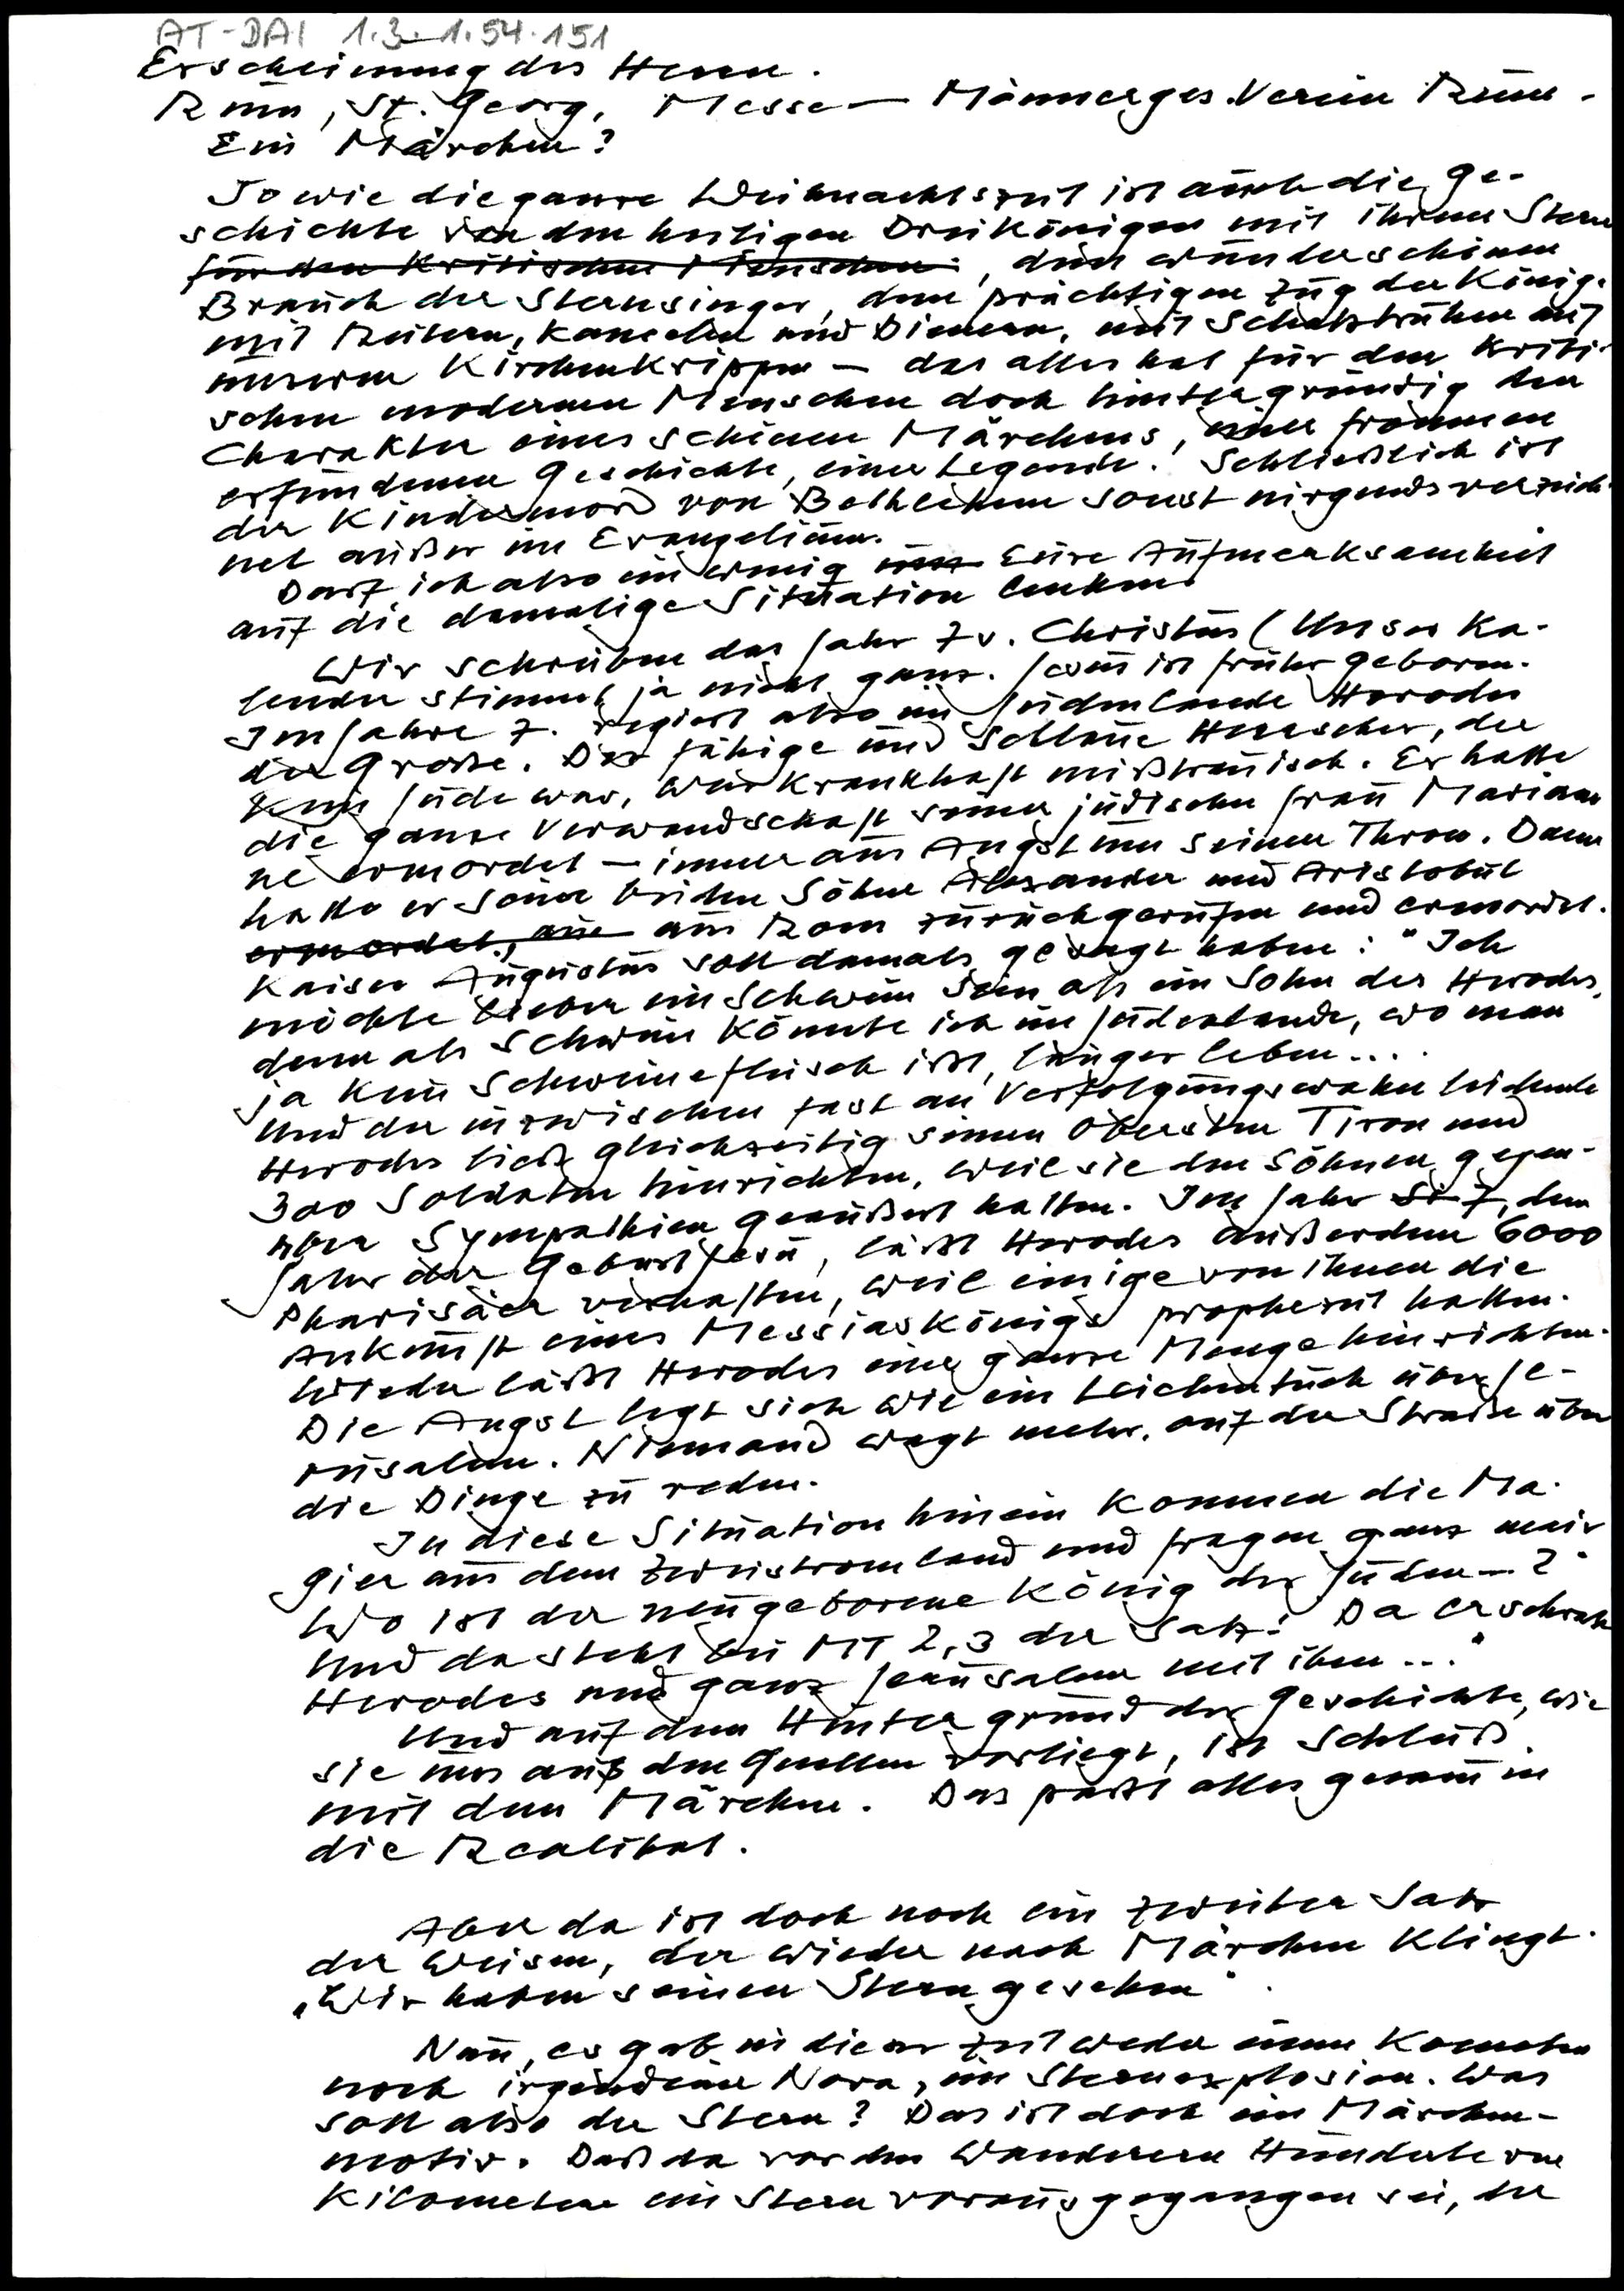 AT-DAI 1.3.1.54.151
Erscheinung des Herrn.
Rum, St. Georg, Messe – Männerges.Verein Rum.
Ein Märchen?
So wie die ganze Weihnachtszeit ist auch die Ge-
schichte von den heiligen Dreikönigen mit ihrem Stern
für den kritischen Menschen, dem wunderschönen
Brauch der Sternsinger, dem prächtigen Zug der König.
mit Reitern, Kamelen und Dienern, mit Schatztruhen auf
unseren Kirchenkrippen – das alles hat für den kriti-
schen modernen Menschen doch hintergründig den
Charakter eines schönen Märchens, einer frommen
erfundenen Geschichte, einer Legende. Schließlich ist
der Kindermord von Bethlehem sonst nirgends verzeich-
net außer im Evangelium.
Darf ich also ein wenig Eure Aufmerksamkeit
auf die damalige Situation lenken.
Wir schreiben das Jahr 7 v. Christus (Unser Ka-
lender stimmt ja nicht ganz. Jesus ist früher geboren.
Im Jahre 7. regiert also im Judenlande Herodes
der Große. Der fähige und schlaue Herrscher, der
kein Jude war, war krankhaft mißtrauisch. Er hatte
die ganze Verwandschaft seiner jüdischen Frau Mariam
ne ermordet – immer aus Angst um seinen Thron. Dann
hatte er seine beiden Söhne Alexander und Aristobul
ermordet, aus Rom zurückgerufen und ermordet.
Kaiser Augustus soll damals gesagt haben: "Ich
möchte lieber ein Schwein sein als ein Sohn des Herodes,
denn als Schwein könnte ich im Judenlande, wo man
ja kein Schweinefleisch ißt, länger leben....
Und der inzwischen fast an Verfolgungswahn leidende
Herodes ließ gleichzeitig seinen Obersten Tiron und
300 Soldaten hinrichten, weil sie den Söhnen gegen-
über Sympathien geäußert hatten. Im Jahr 7, dem
Jahr der Geburt Jesu, läßt Herodes außerdem 6000
Pharisäer verhaften, weil einige von ihnen die
Ankunft eines Messiaskönigs prophezeit hatten.
Wieder läßt Herodes eine ganze Menge hinrichten.
Die Angst legt sich wie ein Leichentuch über Je-
rusalem. Niemand wagt mehr, auf der Straße über
die Dinge zu reden.
In diese Situation hinein kommen die Ma-
gier aus dem Zweistromland und fragen ganz naiv
Wo ist der neugeborene König der Juden –?"
Und da steht bei MT 2,3 der Satz: Da erschrak
Herodes und ganz Jerusalem mit ihm..."
Und auf dem Hintergrund der Geschichte, wie
sie uns aus den Quellen vorliegt, ist Schluß
mit dem Märchen. Das paßt alles genau in
die Realität.
Aber da ist doch noch ein zweiter Satz
der Weisen, der wieder nach Märchen klingt.
„Wir haben seinen Stern gesehen".
Nun, es gab in dieser Zeit weder einen Kometen
noch irgendeine Nova, eine Sternexplosion. Was
soll also der Stern? Das ist doch ein Märchen-
motiv. Daß da vor den Wanderern Hunderte von
Kilometern ein Stern vorausgegangen sei, der